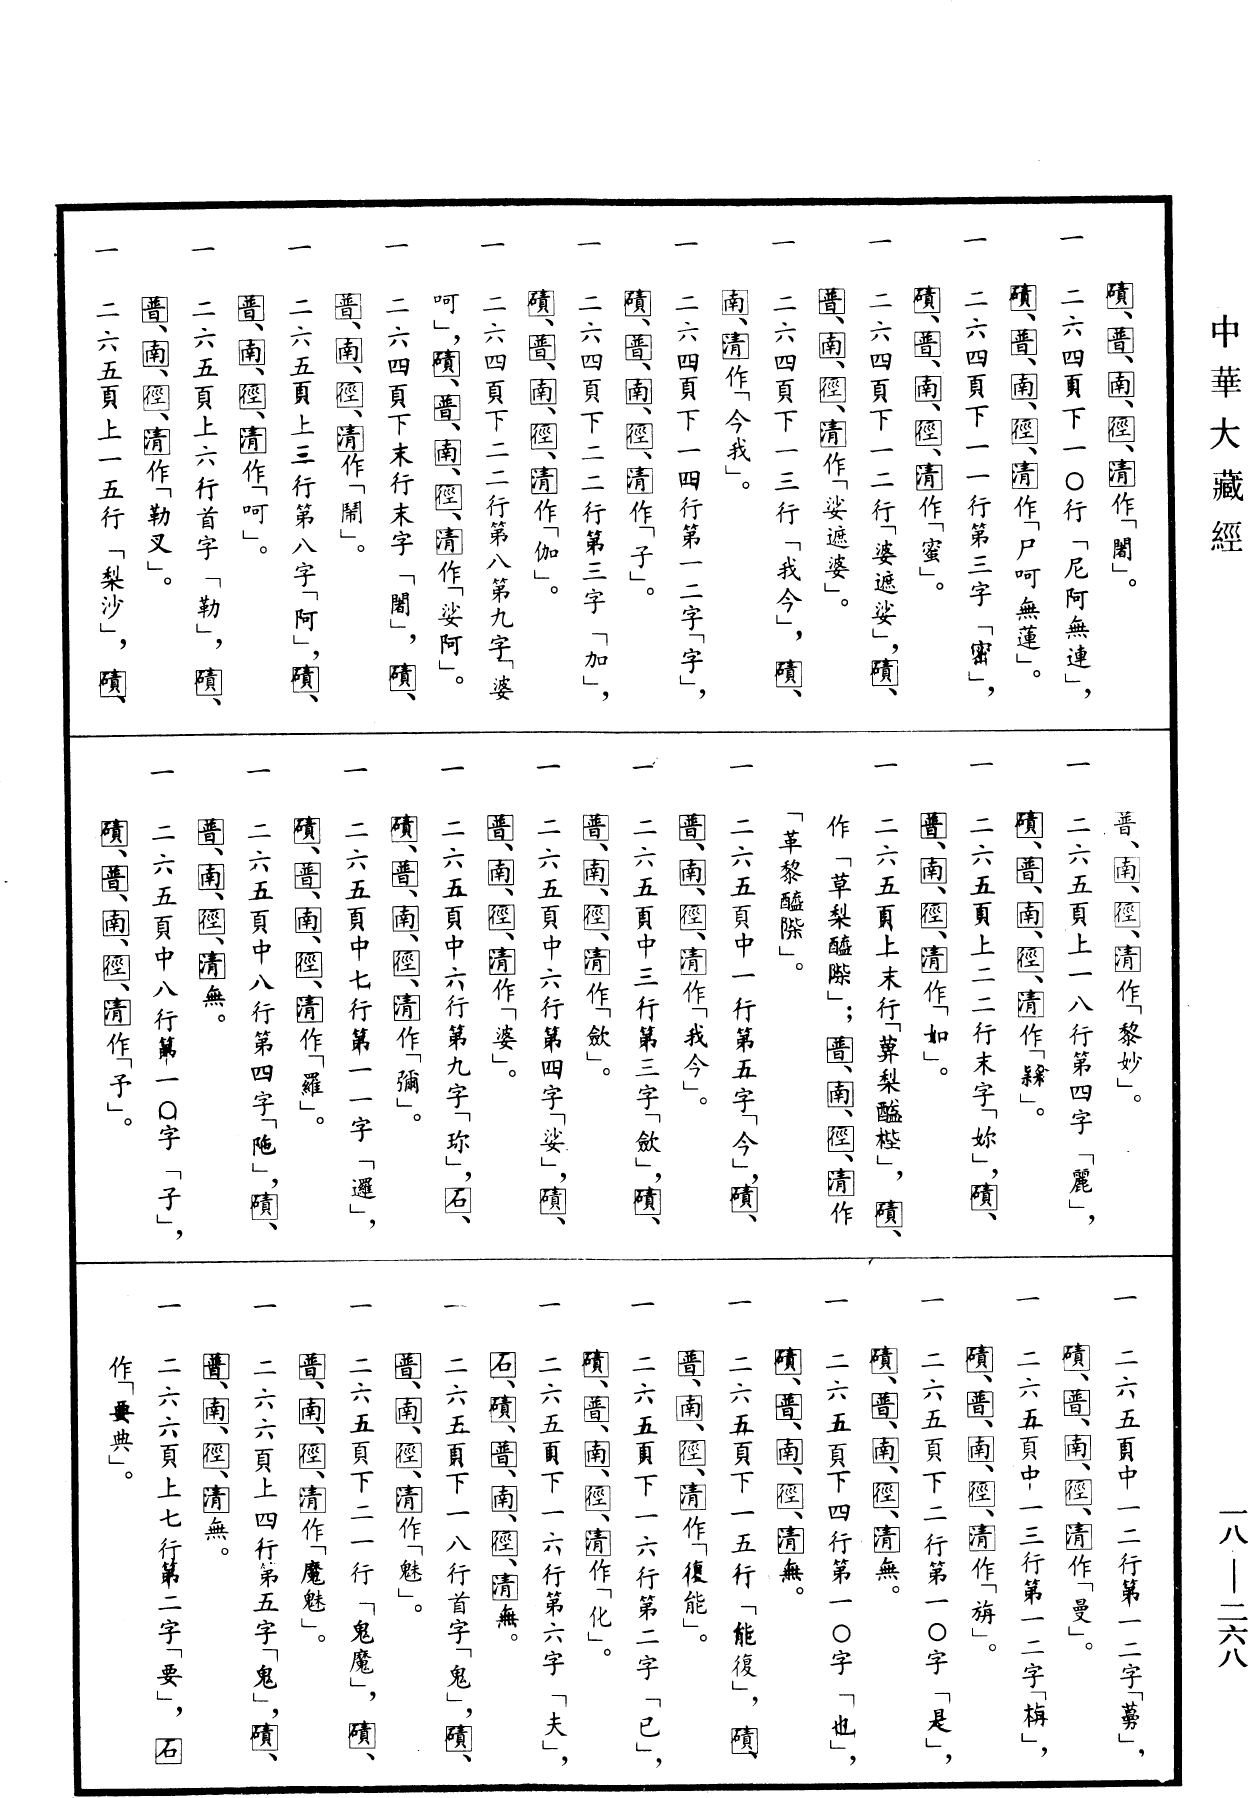 中華大藏經
磧、普、南、徑、清作「闍」。
一 二六四頁下一〇行「尼阿無連」，
磧、普、南、徑、清作「尸呵無蓮」。
一 二六四頁下一一行第三字「密」，
磧、普、南、徑、清作「蜜」。
一 二六四頁下一二行「婆遮娑」，磧、
普、南、徑、清作「娑遮婆」。
一 二六四頁下一三行「我今」，磧、
南、清作「今我」。
一 二六四頁下一四行第一二字「字」，
磧、普、南、徑、清作「子」。
一 二六四頁下二二行第三字「加」，
磧、普、南、徑、清作「伽」。
一 二六四頁下二二行第八第九字「婆
呵」，磧、普、南、徑、清作「娑阿」。
一 二六四頁下末行末字「闍」，磧、
普、南、徑、清作「鬧」。
一 二六五頁上三行第八字「阿」，磧、
普、南、徑、清作「呵」。
一 二六五頁上六行首字「勒」，磧、
普、南、徑、清作「勒叉」。
一 二六五頁上一五行「梨沙」，磧、
普、南、徑、清作「黎妙」。
一 二六五頁上一八行第四字「麗」，
磧、普、南、徑、清作「」。
一 二六五頁上二二行末字「妳」，磧、
普、南、徑、清作「如」。
一 二六五頁上末行「梨醯」，磧、
作「草梨醯」；普、南、徑、清作
「革黎醯」。
一 二六五頁中一行第五字「今」，磧、
普、南、徑、清作「我今」。
一 二六五頁中三行第三字「歛」，磧、
普、南、徑、清作「歛」。
一 二六五頁中六行第四字「娑」，磧、
普、南、徑、清作「婆」。
一 二六五頁中六行第九字「珎」，石、
磧、普、南、徑、清作「彌」。
一 二六五頁中七行第一一字「邏」，
磧、普、南、徑、清作「羅」。
一 二六五頁中八行第四字「陁」，磧、
普、南、徑、清無。
一 二六五頁中八行第一〇字「子」，
磧、普、南、徑、清作「予」。
一 二六五頁中一二行第一二字「蔓」，
磧、普、南、徑、清作「曼」。
一 二六五頁中一三行第一二字「栴」，
磧、普、南、徑、清作「旃」。
一 二六五頁下二行第一〇字「是」，
磧、普、南、徑、清無。
一 二六五頁下四行第一〇字「也」，
磧、普、南、徑、清無。
一 二六五頁下一五行「能復」，磧、
普、南、徑、清作「復能」。
一 二六五頁下一六行第二字「已」，
磧、普、南、徑、清作「化」。
一 二六五頁下一六行第六字「夫」，
石、磧、普、南、徑、清無。
一 二六五頁下一八行首字「鬼」，磧、
普、南、徑、清作「魅」。
一 二六五頁下二一行「鬼魔」，磧、
普、南、徑、清作「魔魅」。
一 二六六頁上四行第五字「鬼」，磧、
普、南、徑、清無。
一 二六六頁上七行第二字「要」，石
作「要典」。
一八—二六八